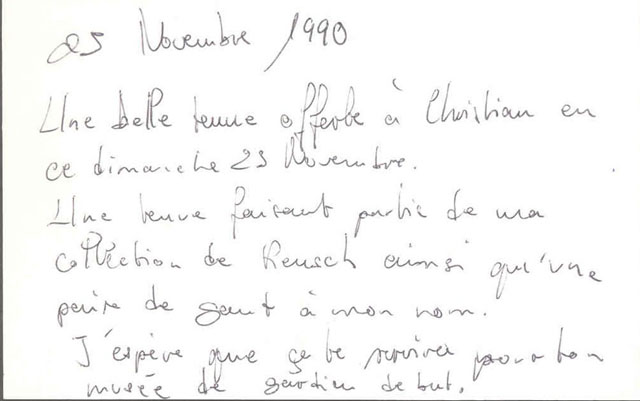 25 Novembre 1990
Une belle tenue offerte à Christian en
ce dimanche 25 Novembre.
Une tenue faisant partie de ma
collection de Reusch ainsi qu'une
paire de gant à mon nom.
J'espère que ça te servira pour ton
musée de gardien de but.